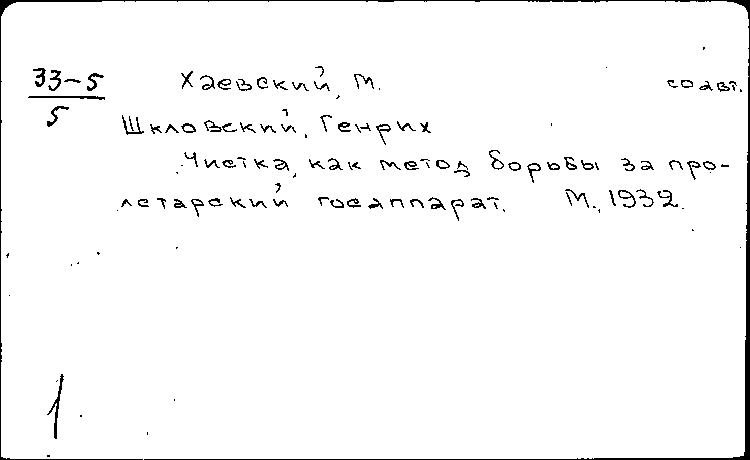 33-5 Хаевский, М. соавт.
5
Шкловский, Генрих
Чистка, как метод борьбы за про-
летарский госаппарат. М., 1932.
1